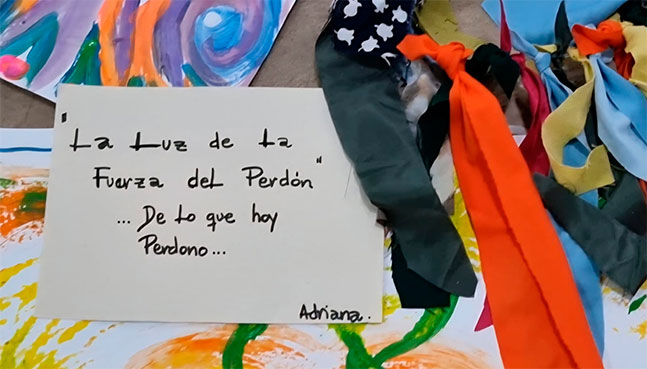 "La Luz de La
Fuerza del Perdón"
... De lo que hoy
Perdono...
Adriana.